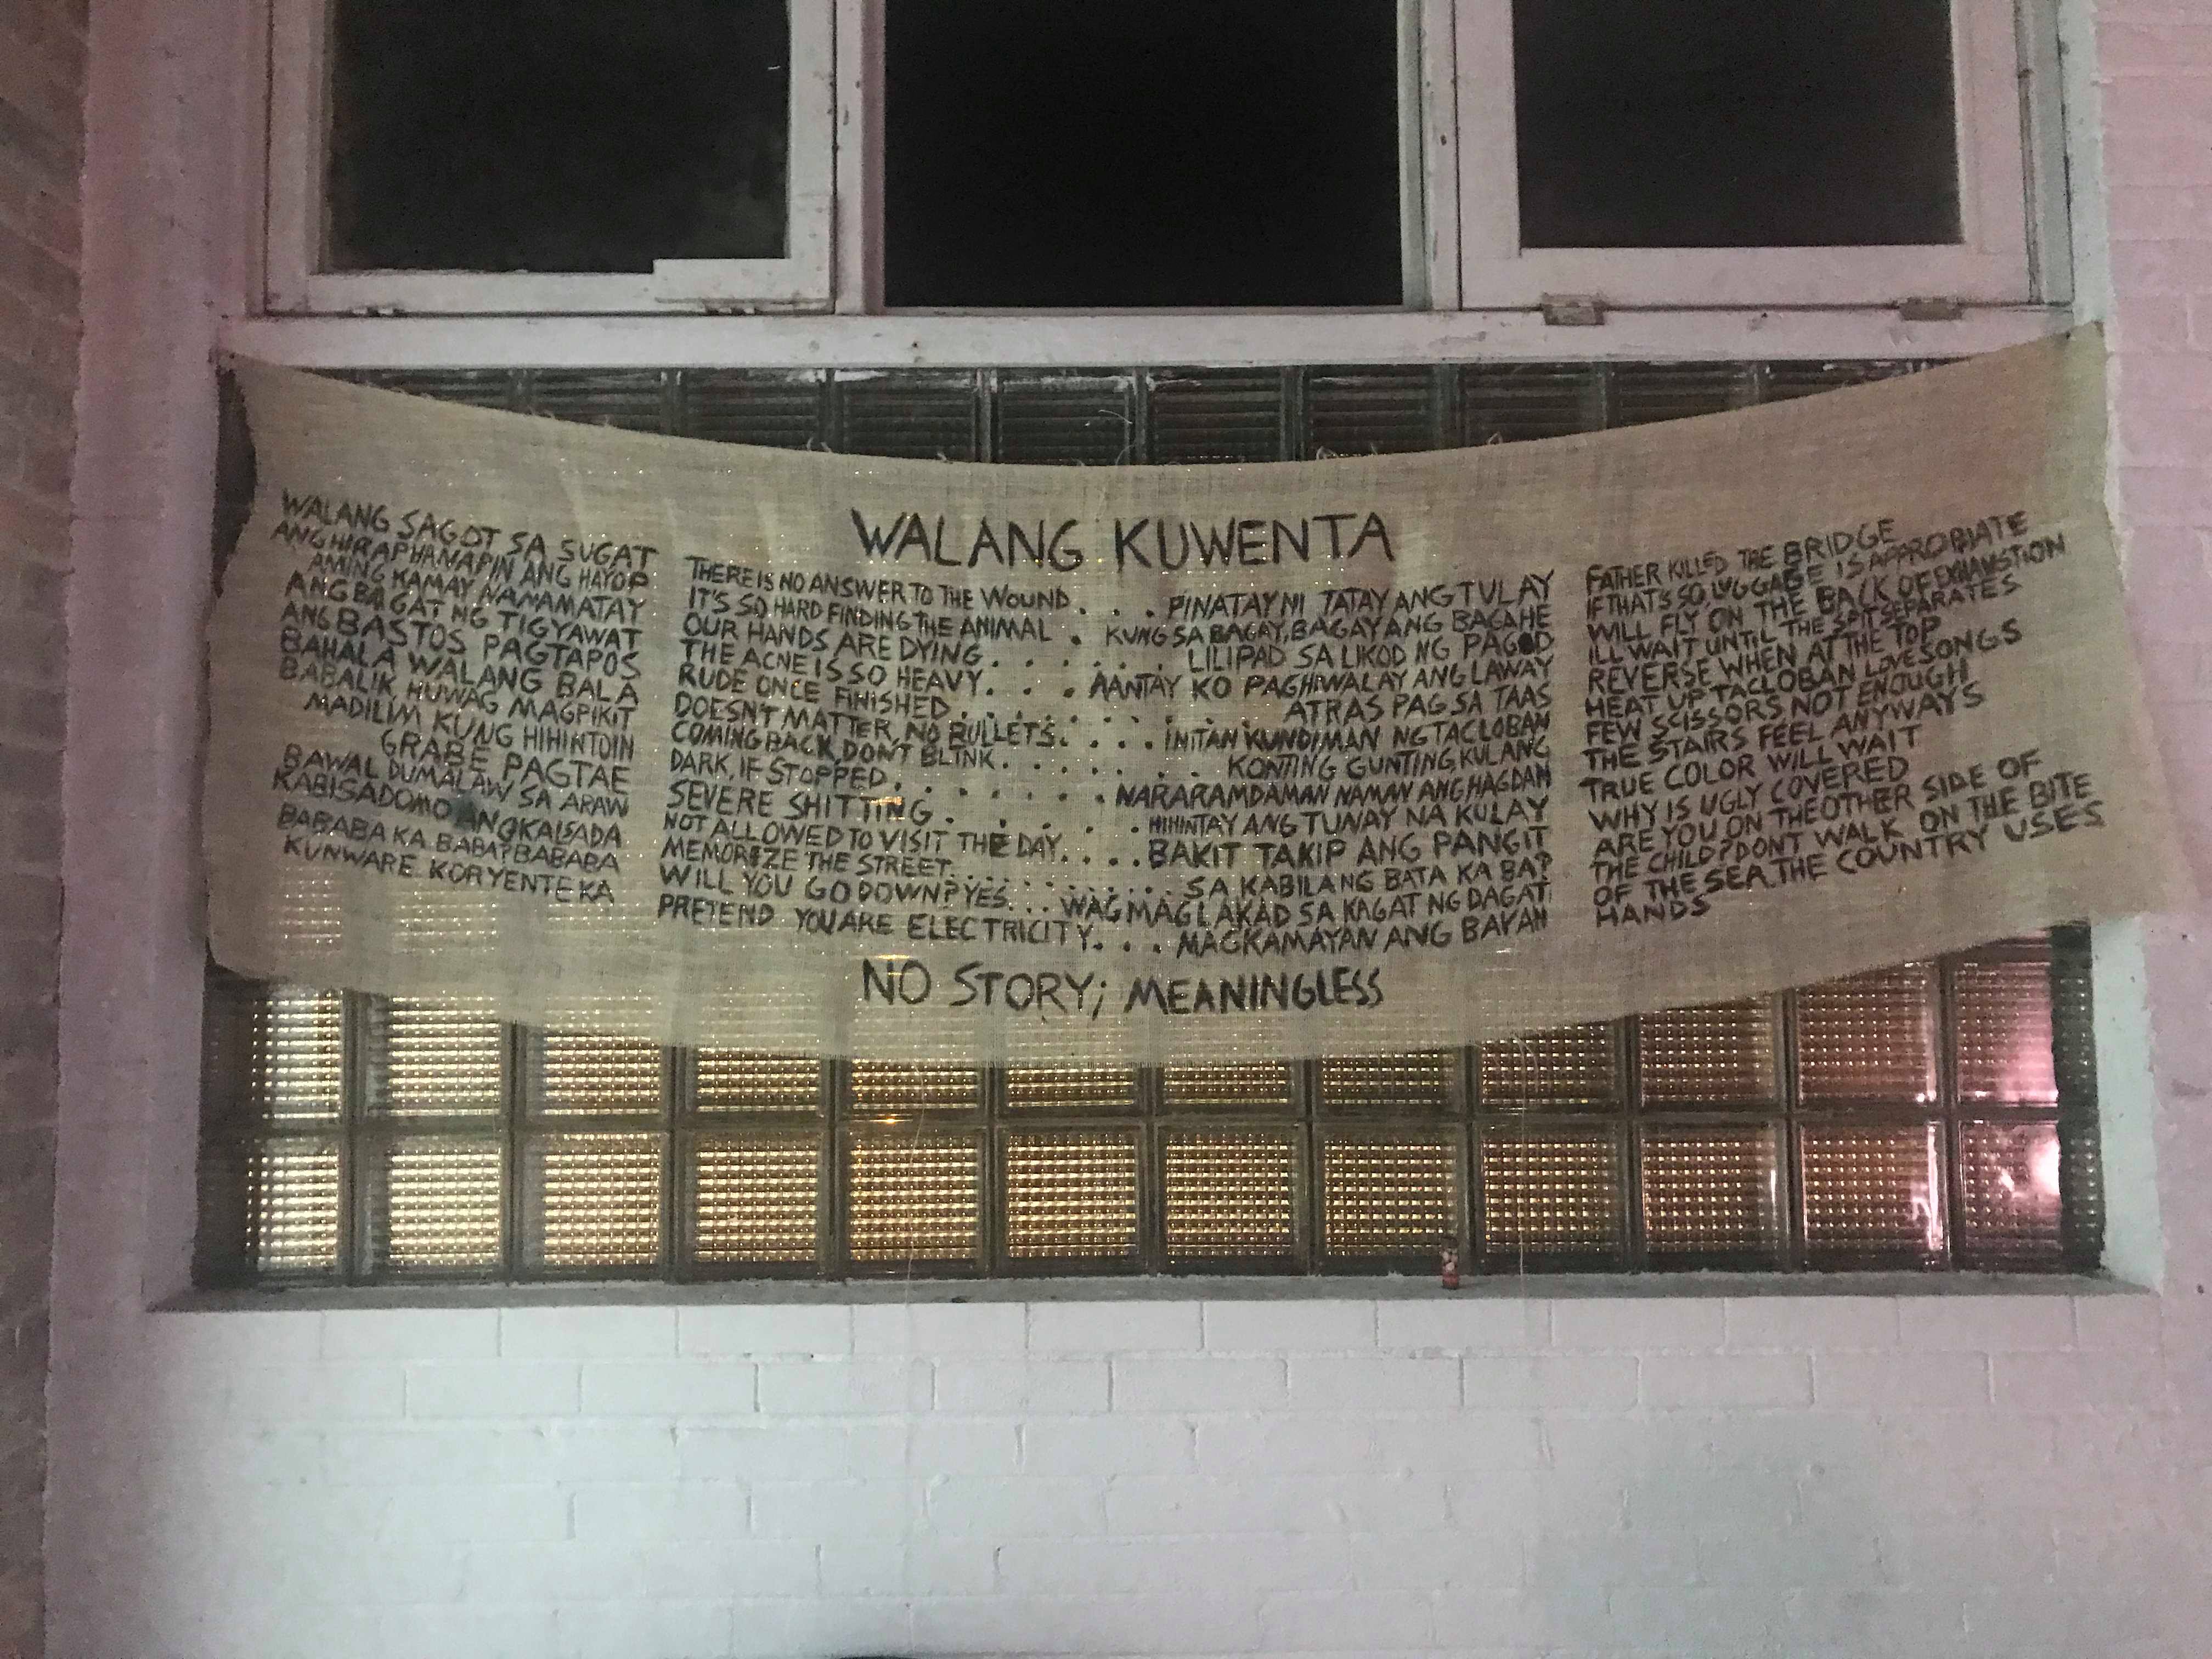 WALANG KUWENTA
WALANG SAGOT SA SUGAT
ANG HIRAP HANAPIN ANG HAYOP
AMING KAMAY NAMAMATAY
ANG BAGAT NG TIGYAWAT
ANG BASTOS PAGTAPOS
BAHALA WALANG BALA
BABALIK, HUWAG MAGPIKIT
MADILIM KUNG HIHINTOIN
GRABE PAGTAE
BAWAL DUMALAW SA ARAW
KABISADOMO ANG KALSADA
BABABA KA BABA? BABABA
KUNWARE KORYENTE KA
THERE IS NO ANSWER TO THE WOUND. . .
IT'S SO HARD FINDING THE ANIMAL .
OUR HANDS ARE DYING. . . . . . .
THE ACNE IS SO HEAVY. . . .
RUDE ONCE FINISHED. . . . . . . . . .
DOESN'T MATTER, NO BULLETS. . . . .
COMING BACK, DON'T BLINK. . . . . . . .
DARK, IF STOPPED. . . . . . . .
SEVERE SHITTING. . . . . . .
NOT ALLOWED TO VISIT THE DAY. . . .
MEMORIZE THE STREET. . . . . . . . . .
WILL YOU GO DOWN? YES. . .
PRETEND YOU ARE ELECTRICITY. . .
PINATAY NI TATAY ANG TULAY
KUNG SA BAGAY, BAGAY ANG BAGAHE
LILIPAD SA LIKOD NG PAGOD
AANTAY KO PAGHIWALAY ANG LAWAY
ATRAS PAG SA TAAS
INITAN KUNDIMAN NG TACLOBAN
KONTING GUNTING KULANG
NARARAMDAMAN NAMAN ANG HAGDAN
HIHINTAY ANG TUNAY NA KULAY
BAKIT TAKIP ANG PANGIT
SA KABILANG BATA KA BA?
WAG MAGLAKAD SA KAGAT NG DAGAT
MAGKAMAYAN ANG BAYAN
FATHER KILLED THE BRIDGE
IF THAT'S SO LUGGAGE IS APPROPRIATE
WILL FLY ON THE BACK OF EXHAUSTION
ILL WAIT UNTIL THE SPIT SEPARATES
REVERSE WHEN AT THE TOP
HEAT UP TACLOBAN LOVE SONGS
FEW SCISSORS NOT ENOUGH
THE STAIRS FEEL ANYWAYS
TRUE COLOR WILL WAIT
WHY IS UGLY COVERED
ARE YOU ON THE OTHER SIDE OF
THE CHILD? DONT WALK ON THE BITE
OF THE SEA. THE COUNTRY USES
HANDS
NO STORY; MEANINGLESS